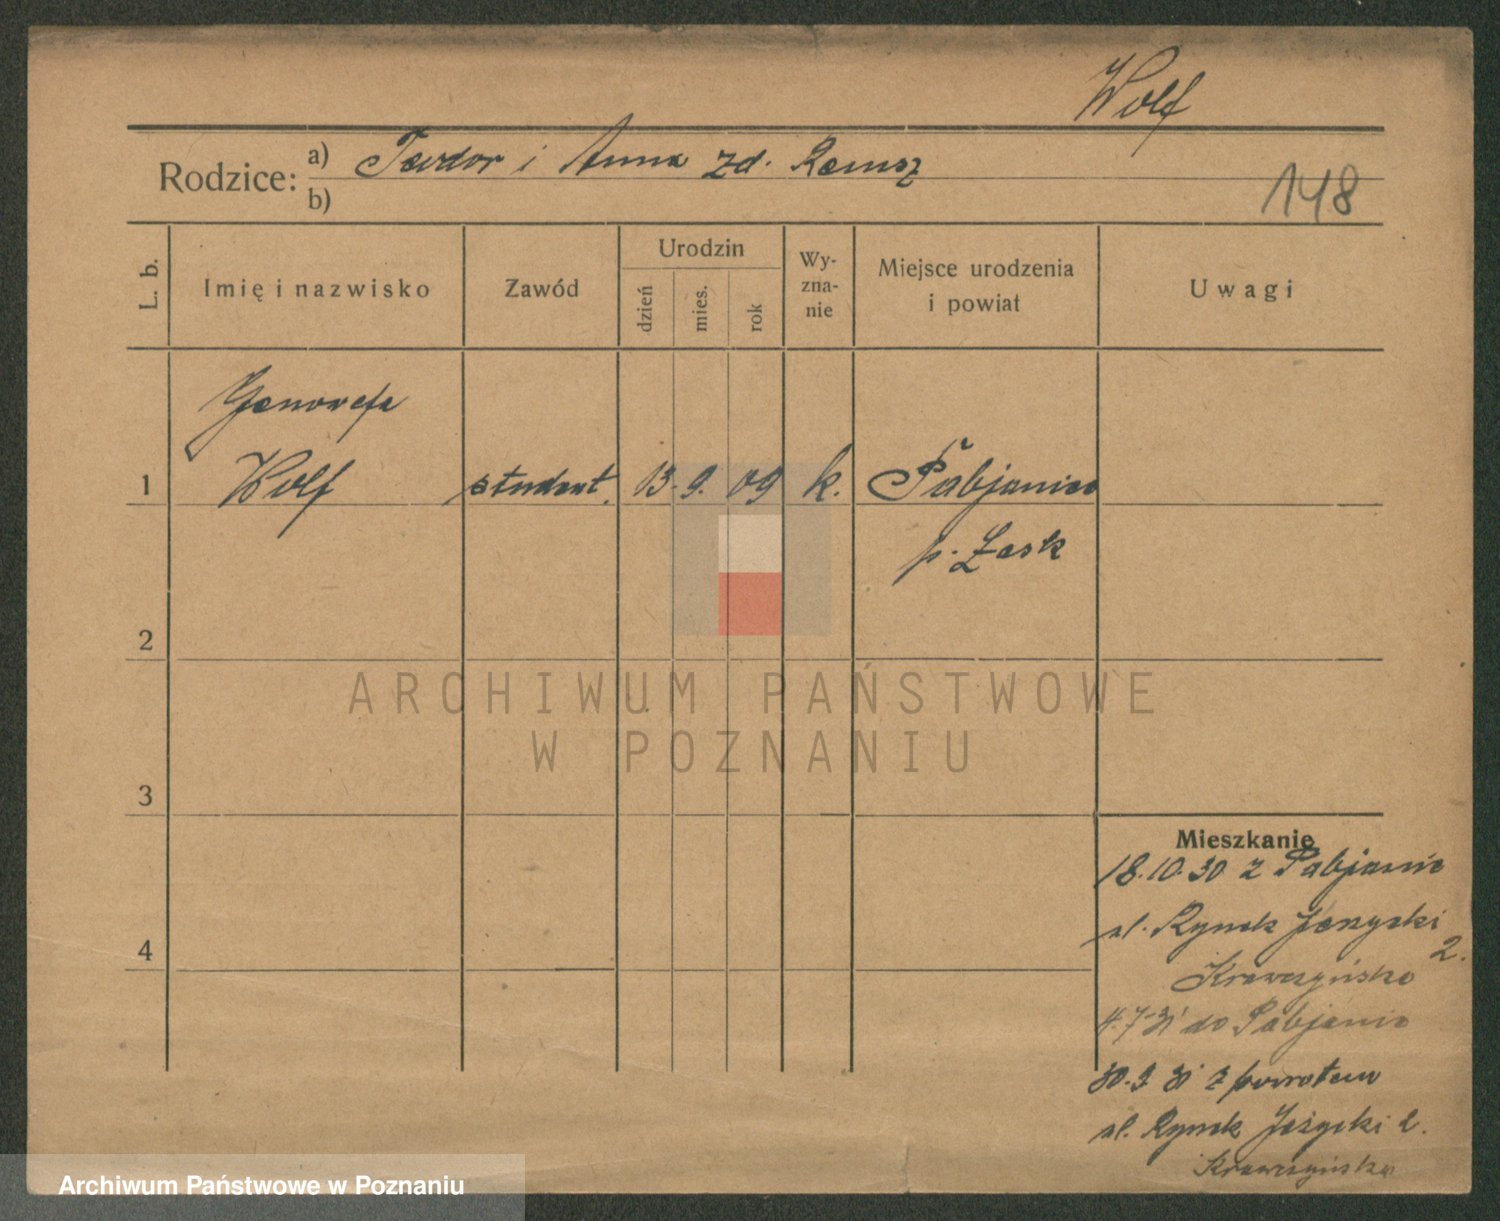 Wolf
Rodzice: a) Teodor i Anna zd. Remsz
b)
148
L. b.
Imię i nazwisko
Zawód
Urodzin
dzień
mies.
rok
Wy-
zna-
nie
Miejsce urodzenia
i powiat
Uwagi
Genowefa
1 Wolf student. 13. 9. 09 k. Pabjanice
p. Łask
2
ARCHIWUM PAŃSTWOWE
W POZNANIU
3
Mieszkanie
18.10.30 z Pabjanic
ul. Rynek Jeżycki
2.
4
Krawczyńska
4.7.31 do Pabjanic
30.9 31 z powrotem
ul. Rynek Jeżycki 2.
Krawczyńska
Archiwum Państwowe w Poznaniu